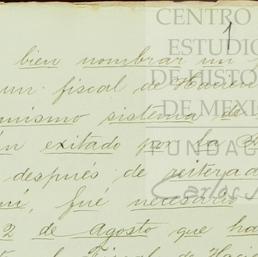 CENTRO
ESTUDIO
DE HISTO
DE MEXI
FUNDA
Carlos S
1
bien nombrar un
un fiscal de Hacien
mismo sistema de
exitado por la
después de reiterada
fué necesario
2 de Agosto que ha
Fiscal de Haci